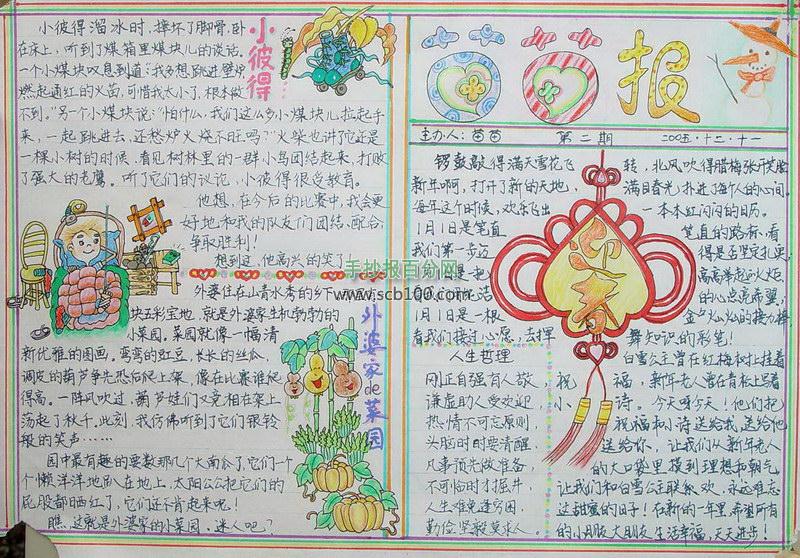 小彼得
小彼得溜冰时，摔坏了脚骨，卧
在床上，听到了煤箱里煤块儿的谈论。
一个小煤块叹息到道："我多想跳进壁炉
燃起通红的火苗，可惜我太小了，根本做
不到。"另一个小煤块说："怕什么，我们这么多小煤块儿拉起手
来，一起跳进去，还愁炉火烧不旺吗？"火柴也讲了它还是
一棵小树的时候，看见树林里的一群小鸟团结起来，打败
了强大的老鹰。听了它们的议论，小彼得很受教育。
他想，在今后的比赛中，我会更
好地和我的队友们团结、配合，
争取胜利！
想到这，他高兴的笑了
外婆家de菜园
外婆住在山青水秀的乡下
块五彩宝地，就是外婆家生机勃勃的
小菜园。菜园就像一幅清
新优雅的图画，弯弯的豇豆，长长的丝瓜，
调皮的葫芦争先恐后爬上架，像在比赛谁爬
得高。一阵风吹过，葫芦娃们又竞相在架上
荡起了秋千。此刻，我仿佛听到了它们银铃
般的笑声……
园中最有趣的要数那几个大南瓜了，它们一个
个懒洋洋地趴在地上，太阳公公把它们的
屁股都晒红了，它们还不肯起来呢！
瞧，这就是外婆家的小菜园，迷人吧？
手抄报百分网
www.scb100.com
苗苗报
主办人：苗苗 第二期 2005.十二.十一
锣鼓敲得满天雪花飞转，北风吹得腊梅张开笑脸
新年啊，打开了新的天地，满目春光扑进了每个人的心间。
每年这个时候，欢乐飞出一本本红闪闪的日历。
1月1日是笔直笔直的路标，看
我们第一步迈得是否坚定扎实。
是一把高高举起的火炬
的心点亮希望，
1月1日是一根金灿灿的接力棒
看我们接过心愿，去挥舞知识的彩笔！
迎春
人生哲理
刚正自强有人敬，
谦虚助人受欢迎，
热情不可忘原则，
头脑时时要清醒，
凡事预先做准备，
不可临时才掘井，
人生难免逢穷困，
勤俭坚毅莫求人。
白雪公主曾在红梅树上挂着
祝福，新年老人曾在青松上写着
小诗。今天呀今天！他们把
祝福和小诗送给我，送给他
送给你，让我们从新年老人
的大口袋里摸到理想和朝气
让我们和白雪公主联系欢，永远难忘
这甜蜜的日子！在新的一年里，希望所有
的小朋友大朋友生活幸福，天天进步！